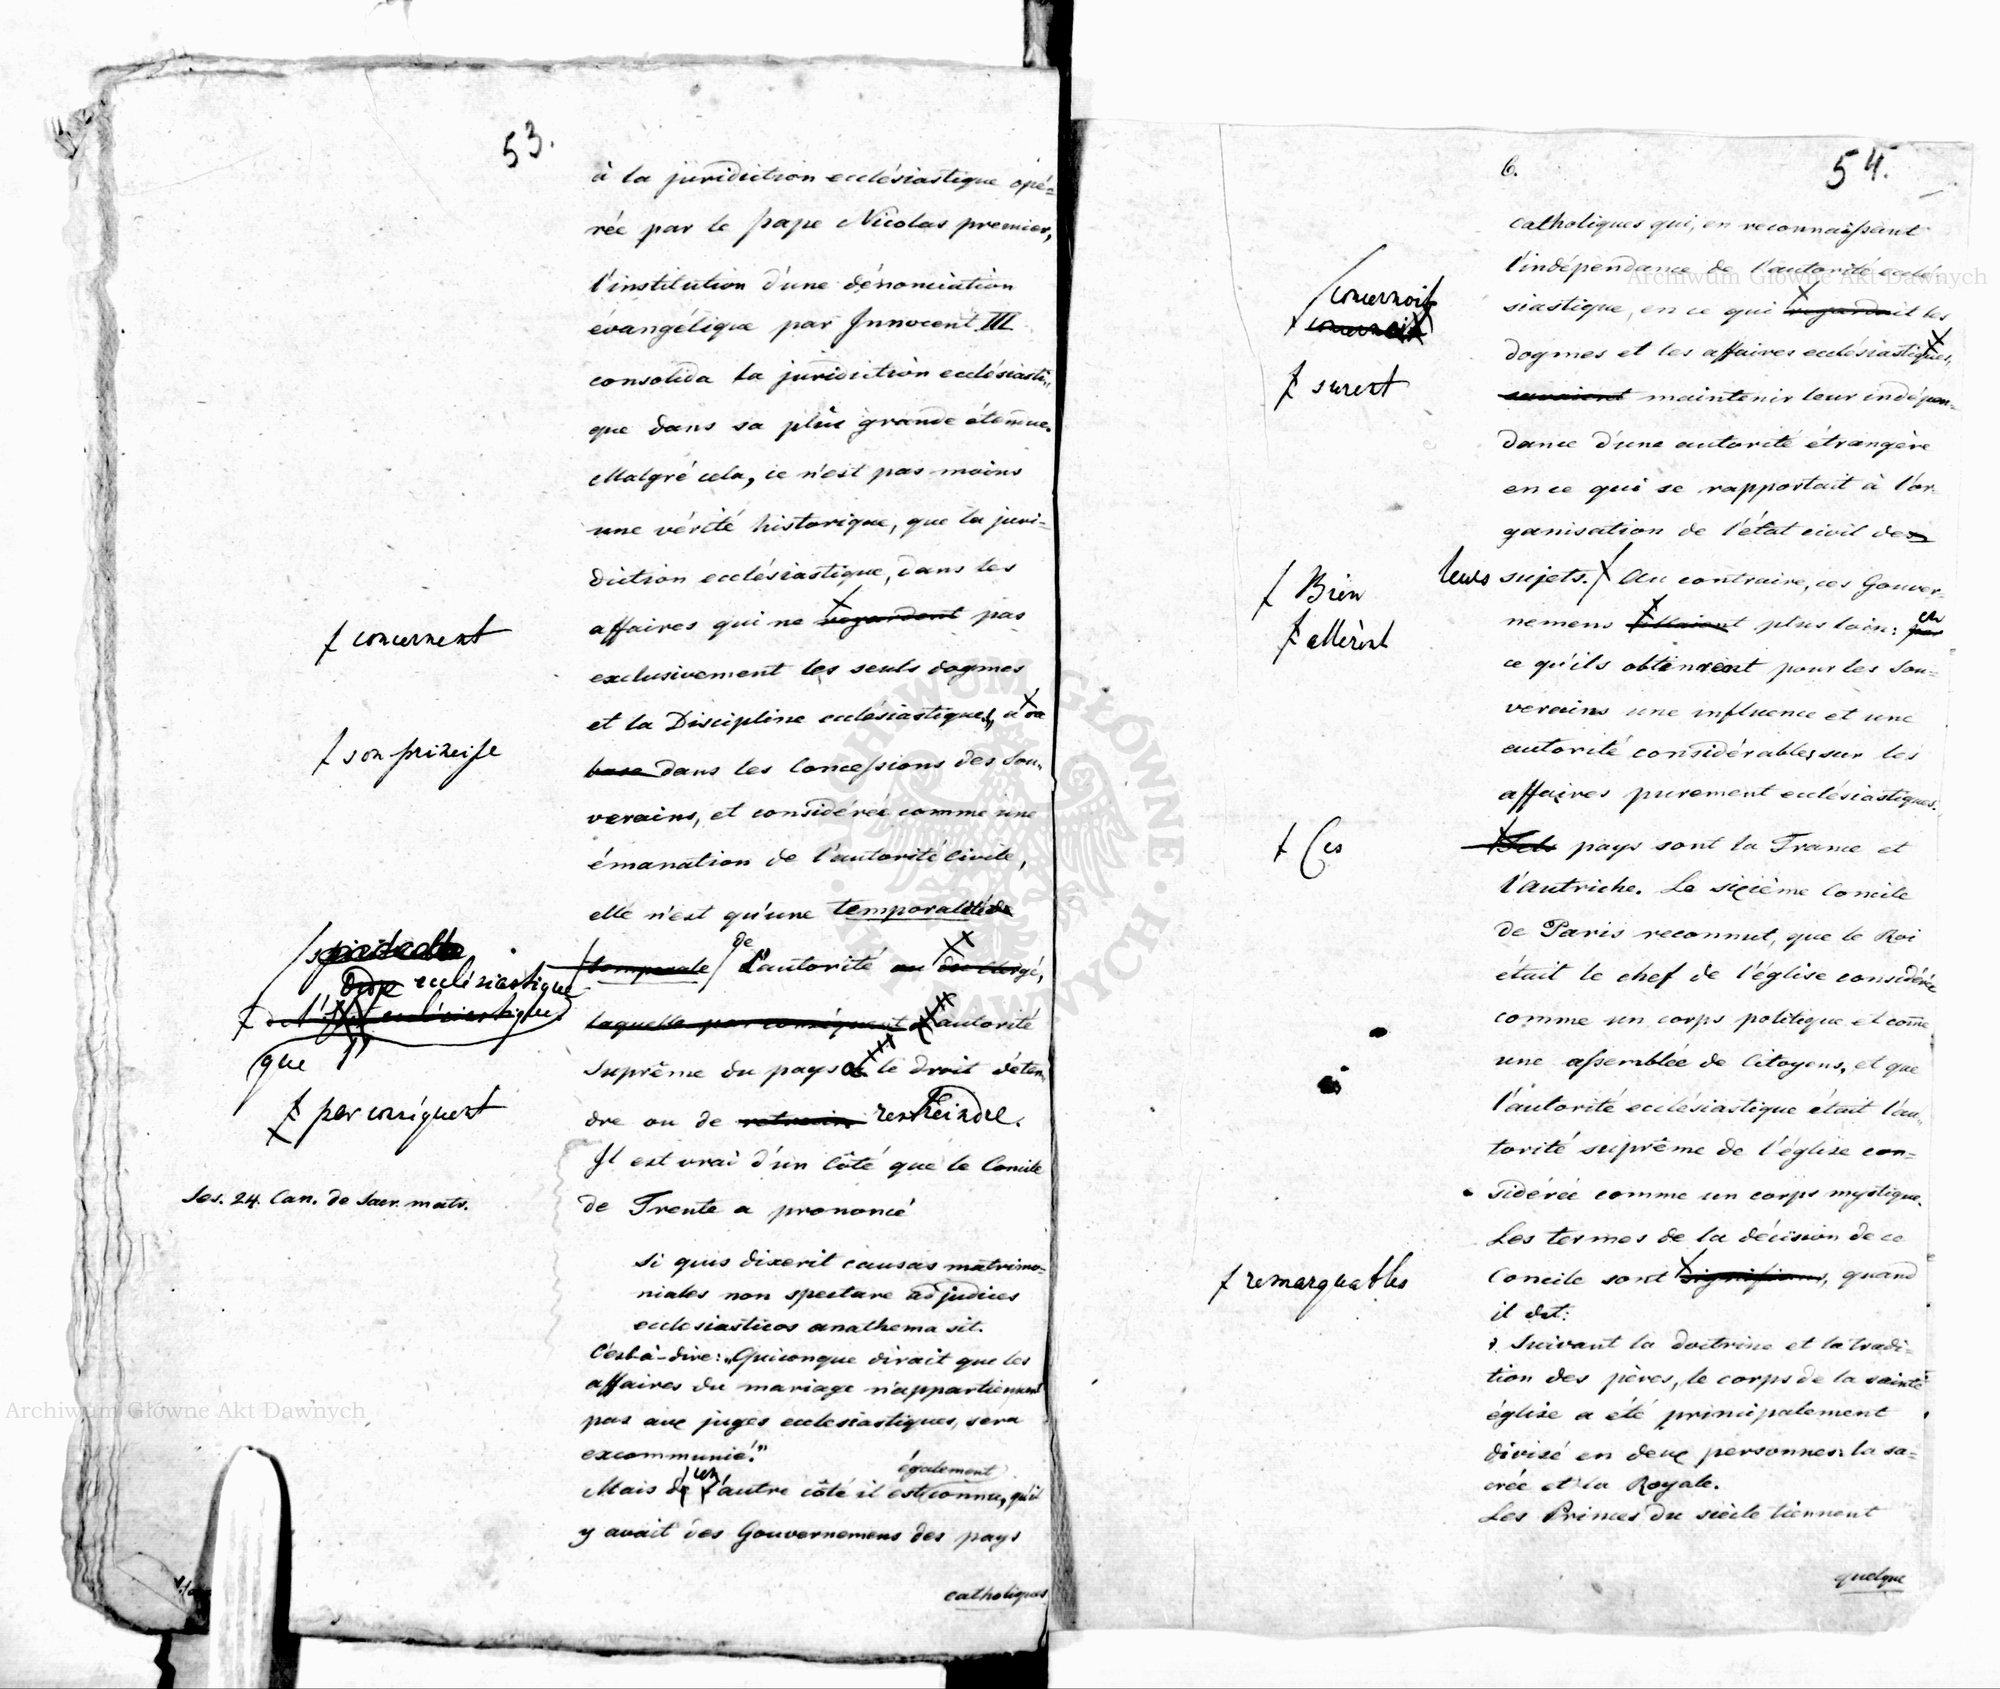 53.
à la juridiction ecclésiastique opé-
rée par le pape Nicolas premier,
l'institution d'une dénonciation
évangélique par Innocent III
consolida la juridiction ecclésiasti-
que dans sa plus grande étendue.
Malgré cela, ce n'est pas moins
une vérité historique, que la juri-
diction ecclésiastique, dans les
affaires qui ne regardent pas
concernent
exclusivement les seuls dogmes
et la Discipline ecclésiastique, a sa
son principe
base dans les Concessions des Sou-
verains, et considérée comme une
émanation de l'autorité Civile,
elle n'est qu'une temporalité de
temporale de l'autorité au du clergé,
ecclésiastique
laquelle par conséquent l'autorité
que
Suprême du pays a le droit d'éten-
par conséquent
dre ou de restreindre.
Il est vrai d'un Côté que le Concile
Ses. 24. Can. de Sacr. matr.
de Trente a prononcé
Si quis dixerit causas matrimo-
niales non spectare ad judices
ecclesiasticos anathema sit.
C'est-à-dire: "Quiconque dirait que les
affaires du mariage n'appartiennent
pas aux juges ecclesiastiques, sera
excommunié."
également
Mais de l'autre côté il est connu, qu'il
y avait des Gouvernemens des pays
catholiques
6.
54.
catholiques qui, en reconnaissant
l'indépendance de l'autorité ecclé-
concernoit
siastique, en ce qui regardait les
dogmes et les affaires ecclésiastiques,
surent
savaient maintenir leur indépen-
dance d'une autorité étrangère
en ce qui se rapportait à l'or-
ganisation de l'état civil des
leurs sujets. Au contraire, ces Gouver-
Bien
nemens allaient plus loin: en
allèrent
ce qu'ils obtinrent pour les Sou-
verains une influence et une
autorité considérables sur les
affaires purement ecclésiastiques.
Ces
Tels pays sont la France et
l'Autriche. Le sixième Concile
de Paris reconnut, que le Roi
était le chef de l'église considérée
comme un corps politique et come
une assemblée de Citoyens, et que
l'autorité ecclésiastique était l'au-
torité suprême de l'église con-
sidérée comme un corps mystique.
Les termes de la décision de ce
remarquables
Concile sont significans, quand
il dit:
Suivant la doctrine et la tradi-
tion des pères, le corps de la sainte
église a été principalement
divisé en deux personnes: la sa-
crée et la Royale.
Les Princes du siècle tiennent
quelque
Archiwum Główne Akt Dawnych
Archiwum Główne Akt Dawnych
ARCHIWUM GŁÓWNE AKT DAWNYCH